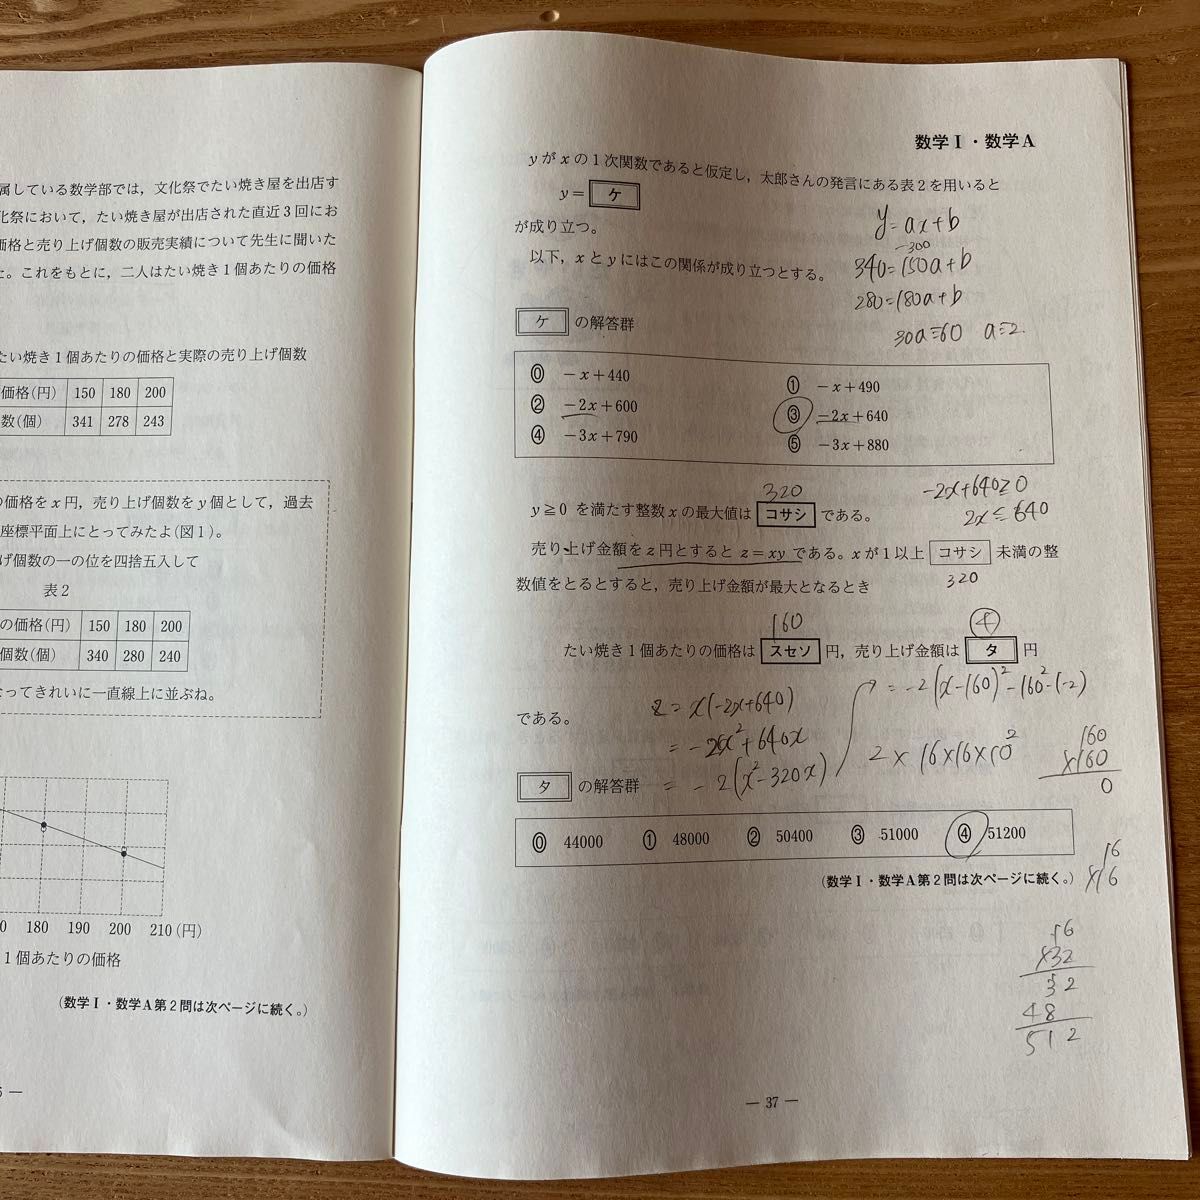 属している数学部では，文化祭でたい焼き屋を出店す
化祭において，たい焼き屋が出店された直近3回にお
価格と売り上げ個数の販売実績について先生に聞いた
た。これをもとに，二人はたい焼き1個あたりの価格
たい焼き1個あたりの価格と実際の売り上げ個数
価格(円) 150 180 200
数(個) 341 278 243
の価格をx円，売り上げ個数をy個として，過去
座標平面上にとってみたよ(図1)。
げ個数の一の位を四捨五入して
表2
の価格(円) 150 180 200
個数(個) 340 280 240
なってきれいに一直線上に並ぶね。
0 180 190 200 210 (円)
1個あたりの価格
(数学Ⅰ・数学A第2問は次ページに続く。)
6 —
数学Ⅰ・数学A
yがxの1次関数であると仮定し，太郎さんの発言にある表2を用いると
y= ケ
が成り立つ。
以下，xとyにはこの関係が成り立つとする。
y=ax+b
-300
340=150a+b
280=180a+b
30a=60 a=2.
ケ の解答群
⓪ −x+440
① −x+490
② −2x+600
③ −2x+640
④ −3x+790
⑤ −3x+880
320
-2x+640≧0
2x≦640
y≧0 を満たす整数xの最大値は コサシ である。
売り上げ金額をz円とするとz=xyである。xが1以上 コサシ 未満の整
320
数値をとるとすると，売り上げ金額が最大となるとき
160
④
たい焼き1個あたりの価格は スセソ 円，売り上げ金額は タ 円
である。
z=x(-2x+640)
=-2x²+640x
=-2(x²-320x)
=-2(x-160)²-160²·(-2)
2×16×16×10²
160
×160
0
タ の解答群
⓪ 44000 ① 48000 ② 50400 ③ 51000 ④ 51200
(数学Ⅰ・数学A第2問は次ページに続く。)
16
×16
16
×32
32
48
512
— 37 —